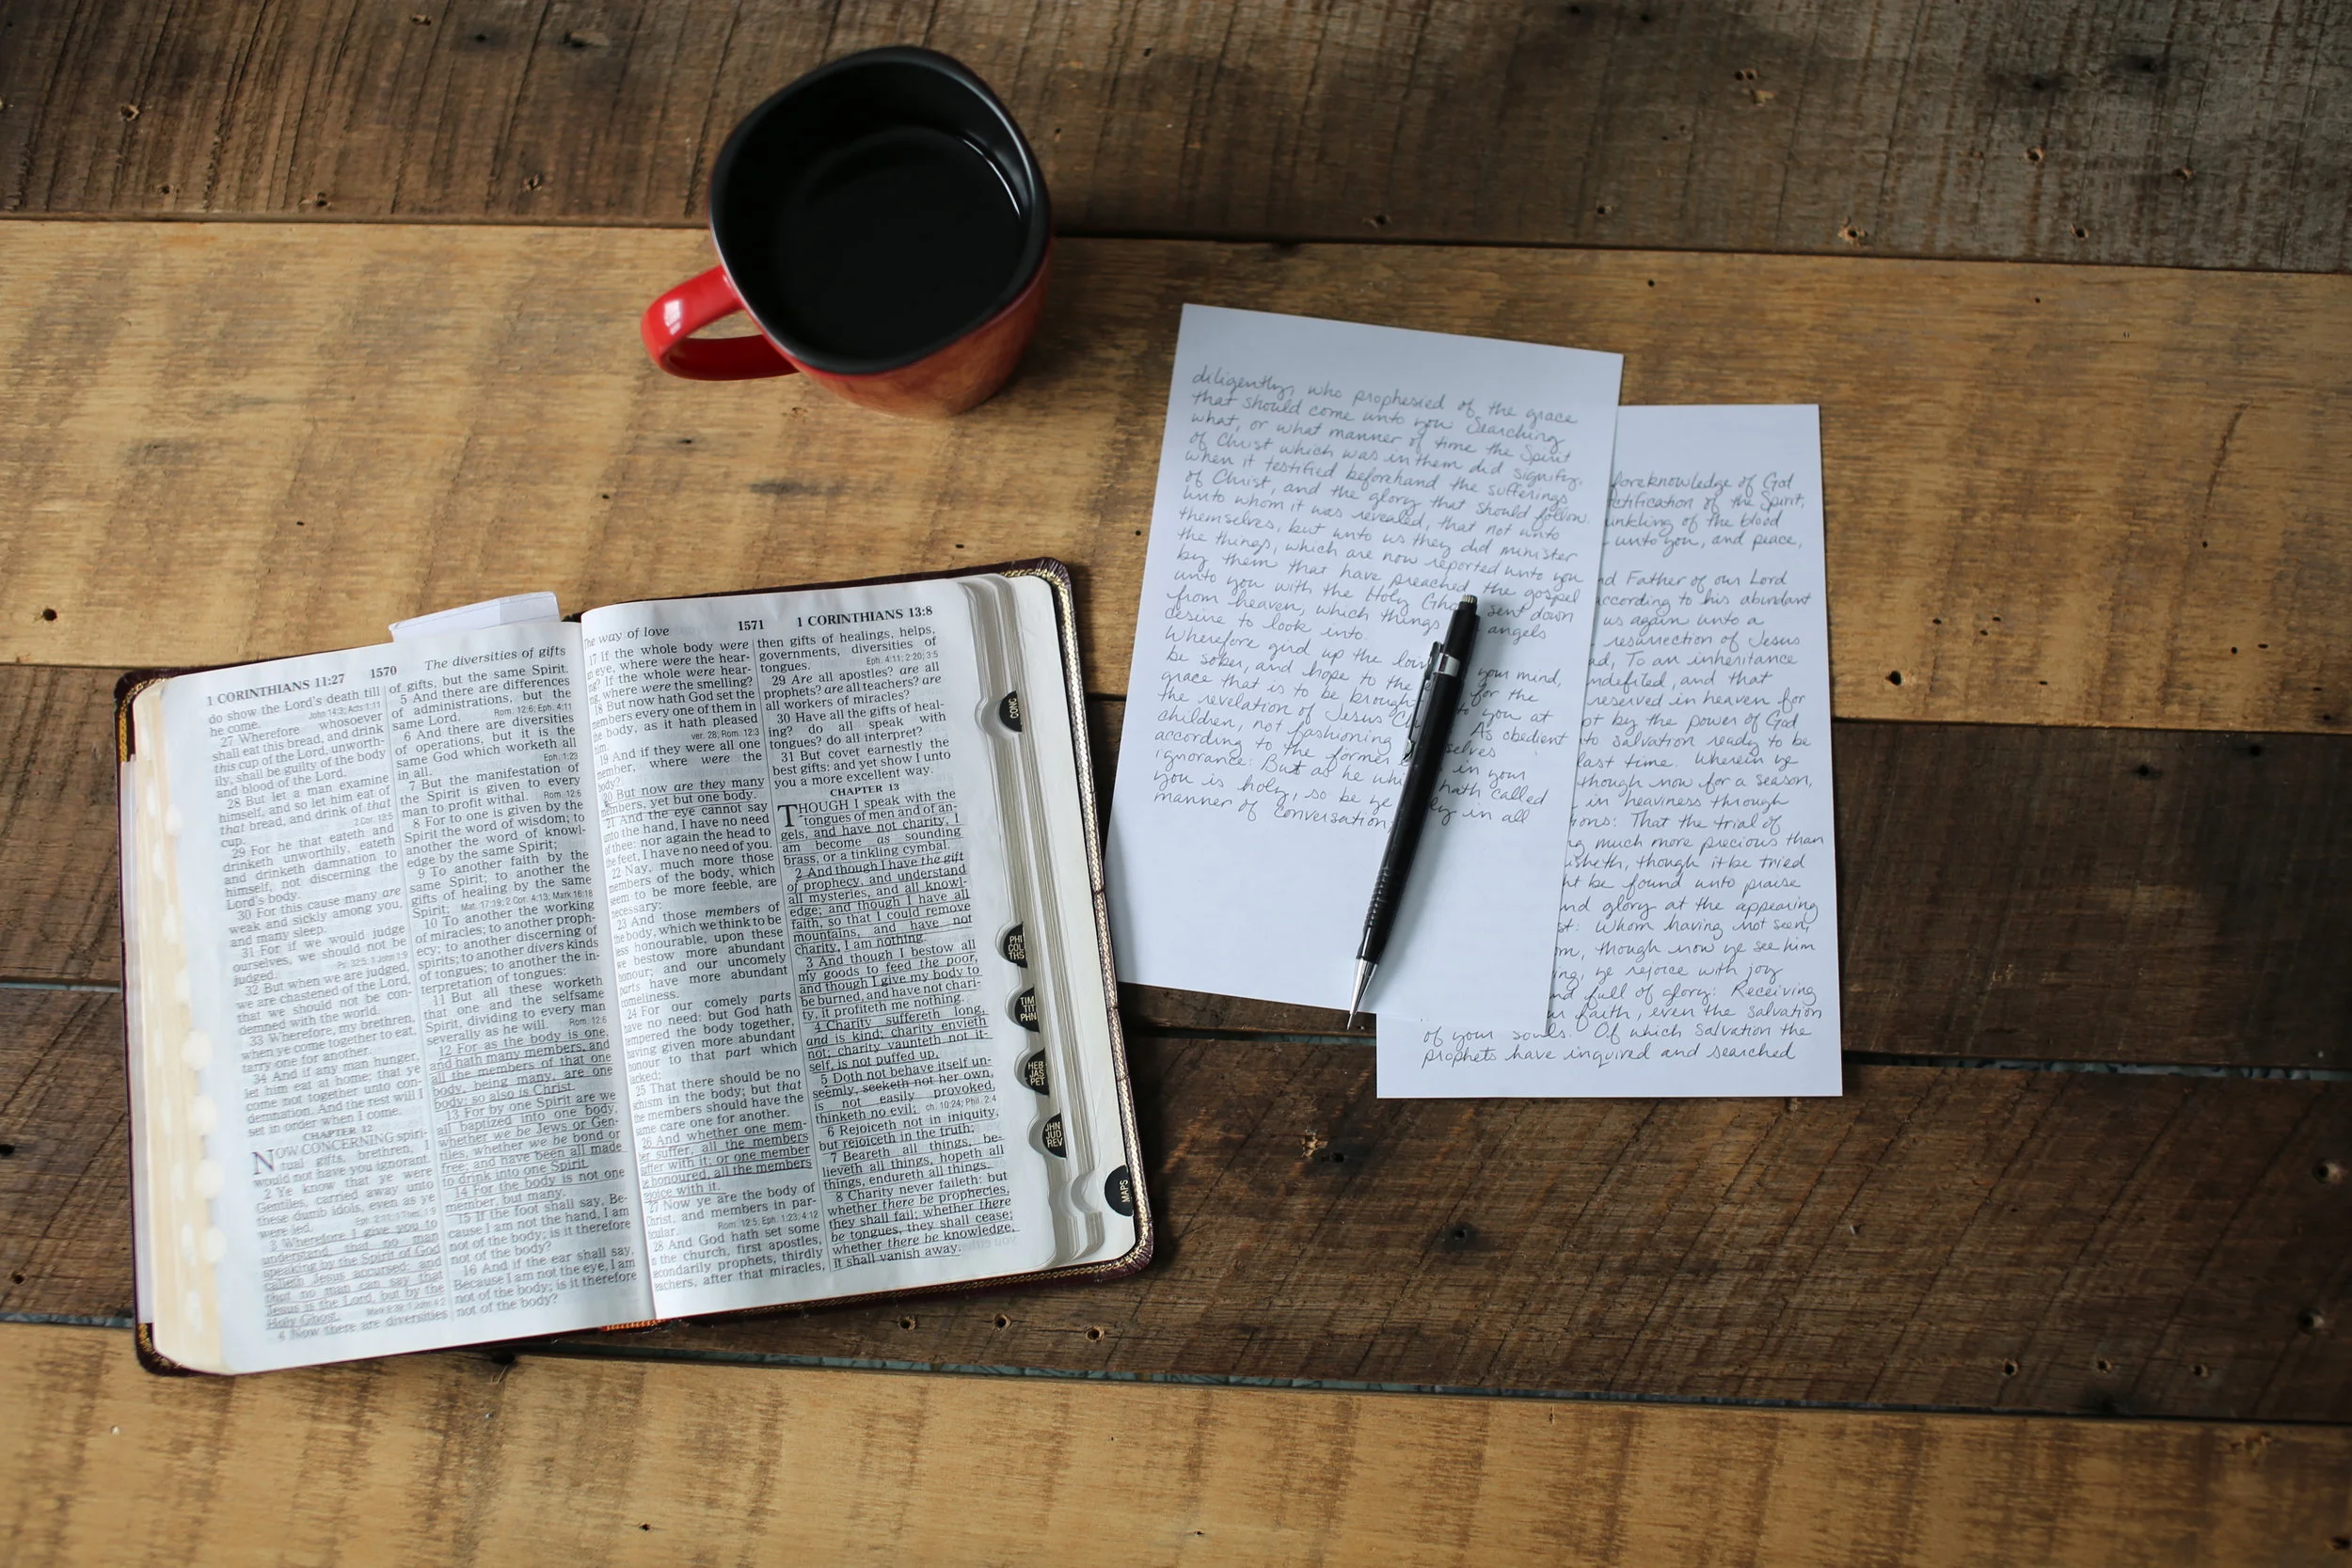 1 CORINTHIANS 11:27
1570
The diversities of gifts
do show the Lord's death till
he come. John 14:3; Acts 1:11
27 Wherefore whosoever
shall eat this bread, and drink
this cup of the Lord, unworth-
ily, shall be guilty of the body
and blood of the Lord.
28 But let a man examine
himself, and so let him eat of
that bread, and drink of that
cup. 2 Cor. 13:5
29 For he that eateth and
drinketh unworthily, eateth
and drinketh damnation to
himself, not discerning the
Lord's body.
30 For this cause many are
weak and sickly among you,
and many sleep.
31 For if we would judge
ourselves, we should not be
judged. Ps. 32:5; 1 John 1:9
32 But when we are judged,
we are chastened of the Lord,
that we should not be con-
demned with the world.
33 Wherefore, my brethren,
when ye come together to eat,
tarry one for another.
34 And if any man hunger,
let him eat at home; that ye
come not together unto con-
demnation. And the rest will I
set in order when I come.
CHAPTER 12
NOW CONCERNING spiri-
tual gifts, brethren, I
would not have you ignorant.
2 Ye know that ye were
Gentiles, carried away unto
these dumb idols, even as ye
were led.
3 Wherefore I give you to
understand, that no man
speaking by the Spirit of God
calleth Jesus accursed: and
that no man can say that
Jesus is the Lord, but by the
Holy Ghost.
4 Now there are diversities
of gifts, but the same Spirit.
5 And there are differences
of administrations, but the
same Lord. Rom. 12:6; Eph. 4:11
6 And there are diversities
of operations, but it is the
same God which worketh all
in all. Eph. 1:23
7 But the manifestation of
the Spirit is given to every
man to profit withal. Rom. 12:6
8 For to one is given by the
Spirit the word of wisdom; to
another the word of knowl-
edge by the same Spirit;
9 To another faith by the
same Spirit; to another the
gifts of healing by the same
Spirit; Mat. 17:19; 2 Cor. 4:13; Mark 16:18
10 To another the working
of miracles; to another proph-
ecy; to another discerning of
spirits; to another divers kinds
of tongues; to another the in-
terpretation of tongues:
11 But all these worketh
that one and the selfsame
Spirit, dividing to every man
severally as he will. Rom. 12:6
12 For as the body is one,
and hath many members, and
all the members of that one
body, being many, are one
body: so also is Christ.
13 For by one Spirit are we
all baptized into one body,
whether we be Jews or Gen-
tiles, whether we be bond or
free; and have been all made
to drink into one Spirit.
14 For the body is not one
member, but many.
15 If the foot shall say, Be-
cause I am not the hand, I am
not of the body; is it therefore
not of the body?
16 And if the ear shall say,
Because I am not the eye, I am
not of the body; is it therefore
not of the body?
The way of love
1571
1 CORINTHIANS 13:8
17 If the whole body were
an eye, where were the hear-
ing? If the whole were hear-
ing, where were the smelling?
18 But now hath God set the
members every one of them in
the body, as it hath pleased
him. ver. 28; Rom. 12:3
19 And if they were all one
member, where were the
body?
20 But now are they many
members, yet but one body.
21 And the eye cannot say
unto the hand, I have no need
of thee: nor again the head to
the feet, I have no need of you.
22 Nay, much more those
members of the body, which
seem to be more feeble, are
necessary:
23 And those members of
the body, which we think to be
less honourable, upon these
we bestow more abundant
honour; and our uncomely
parts have more abundant
comeliness.
24 For our comely parts
have no need: but God hath
tempered the body together,
having given more abundant
honour to that part which
lacked:
25 That there should be no
schism in the body; but that
the members should have the
same care one for another.
26 And whether one mem-
ber suffer, all the members
suffer with it; or one member
be honoured, all the members
rejoice with it.
27 Now ye are the body of
Christ, and members in par-
ticular. Rom. 12:5; Eph. 1:23; 4:12
28 And God hath set some
in the church, first apostles,
secondarily prophets, thirdly
teachers, after that miracles,
then gifts of healings, helps,
governments, diversities of
tongues. Eph. 4:11; 2:20; 3:5
29 Are all apostles? are all
prophets? are all teachers? are
all workers of miracles?
30 Have all the gifts of heal-
ing? do all speak with
tongues? do all interpret?
31 But covet earnestly the
best gifts: and yet show I unto
you a more excellent way.
CHAPTER 13
THOUGH I speak with the
tongues of men and of an-
gels, and have not charity, I
am become as sounding
brass, or a tinkling cymbal.
2 And though I have the gift
of prophecy, and understand
all mysteries, and all knowl-
edge; and though I have all
faith, so that I could remove
mountains, and have not
charity, I am nothing.
3 And though I bestow all
my goods to feed the poor,
and though I give my body to
be burned, and have not chari-
ty, it profiteth me nothing.
4 Charity suffereth long,
and is kind; charity envieth
not; charity vaunteth not it-
self, is not puffed up,
5 Doth not behave itself un-
seemly, seeketh not her own,
is not easily provoked,
thinketh no evil; ch. 10:24; Phil. 2:4
6 Rejoiceth not in iniquity,
but rejoiceth in the truth;
7 Beareth all things, be-
lieveth all things, hopeth all
things, endureth all things.
8 Charity never faileth: but
whether there be prophecies,
they shall fail; whether there
be tongues, they shall cease;
whether there be knowledge,
it shall vanish away.
CONC
PHI
COL
THS
TIM
TIT
PHN
HEB
JAS
PET
JHN
JUD
REV
MAPS
diligently, who prophesied of the grace
that should come unto you Searching
what, or what manner of time the Spirit
of Christ which was in them did signify,
when it testified beforehand the sufferings
of Christ, and the glory that should follow.
Unto whom it was revealed, that not unto
themselves, but unto us they did minister
the things, which are now reported unto you
by them that have preached the gospel
unto you with the Holy Gho sent down
from heaven, which things angels
desire to look into.
Wherefore gird up the loin your mind,
be sober, and hope to the for the
grace that is to be brough to you at
the revelation of Jesus Ch As obedient
children, not fashioning selves
according to the former in your
ignorance: But as he whi hath called
you is holy, so be ye ly in all
manner of conversation;
foreknowledge of God
ctification of the Spirit,
inkling of the blood
unto you, and peace,
nd Father of our Lord
according to his abundant
us again unto a
resurrection of Jesus
ad, To an inheritance
ndefiled, and that
reserved in heaven for
pt by the power of God
to salvation ready to be
last time. Wherein ye
though now for a season,
in heaviness through
ions: That the trial of
ng much more precious than
isheth, though it be tried
ht be found unto praise
nd glory at the appearing
st: Whom having not seen,
om, though now ye see him
ing, ye rejoice with joy
nd full of glory: Receiving
ur faith, even the salvation
of your souls. Of which salvation the
prophets have inquired and searched